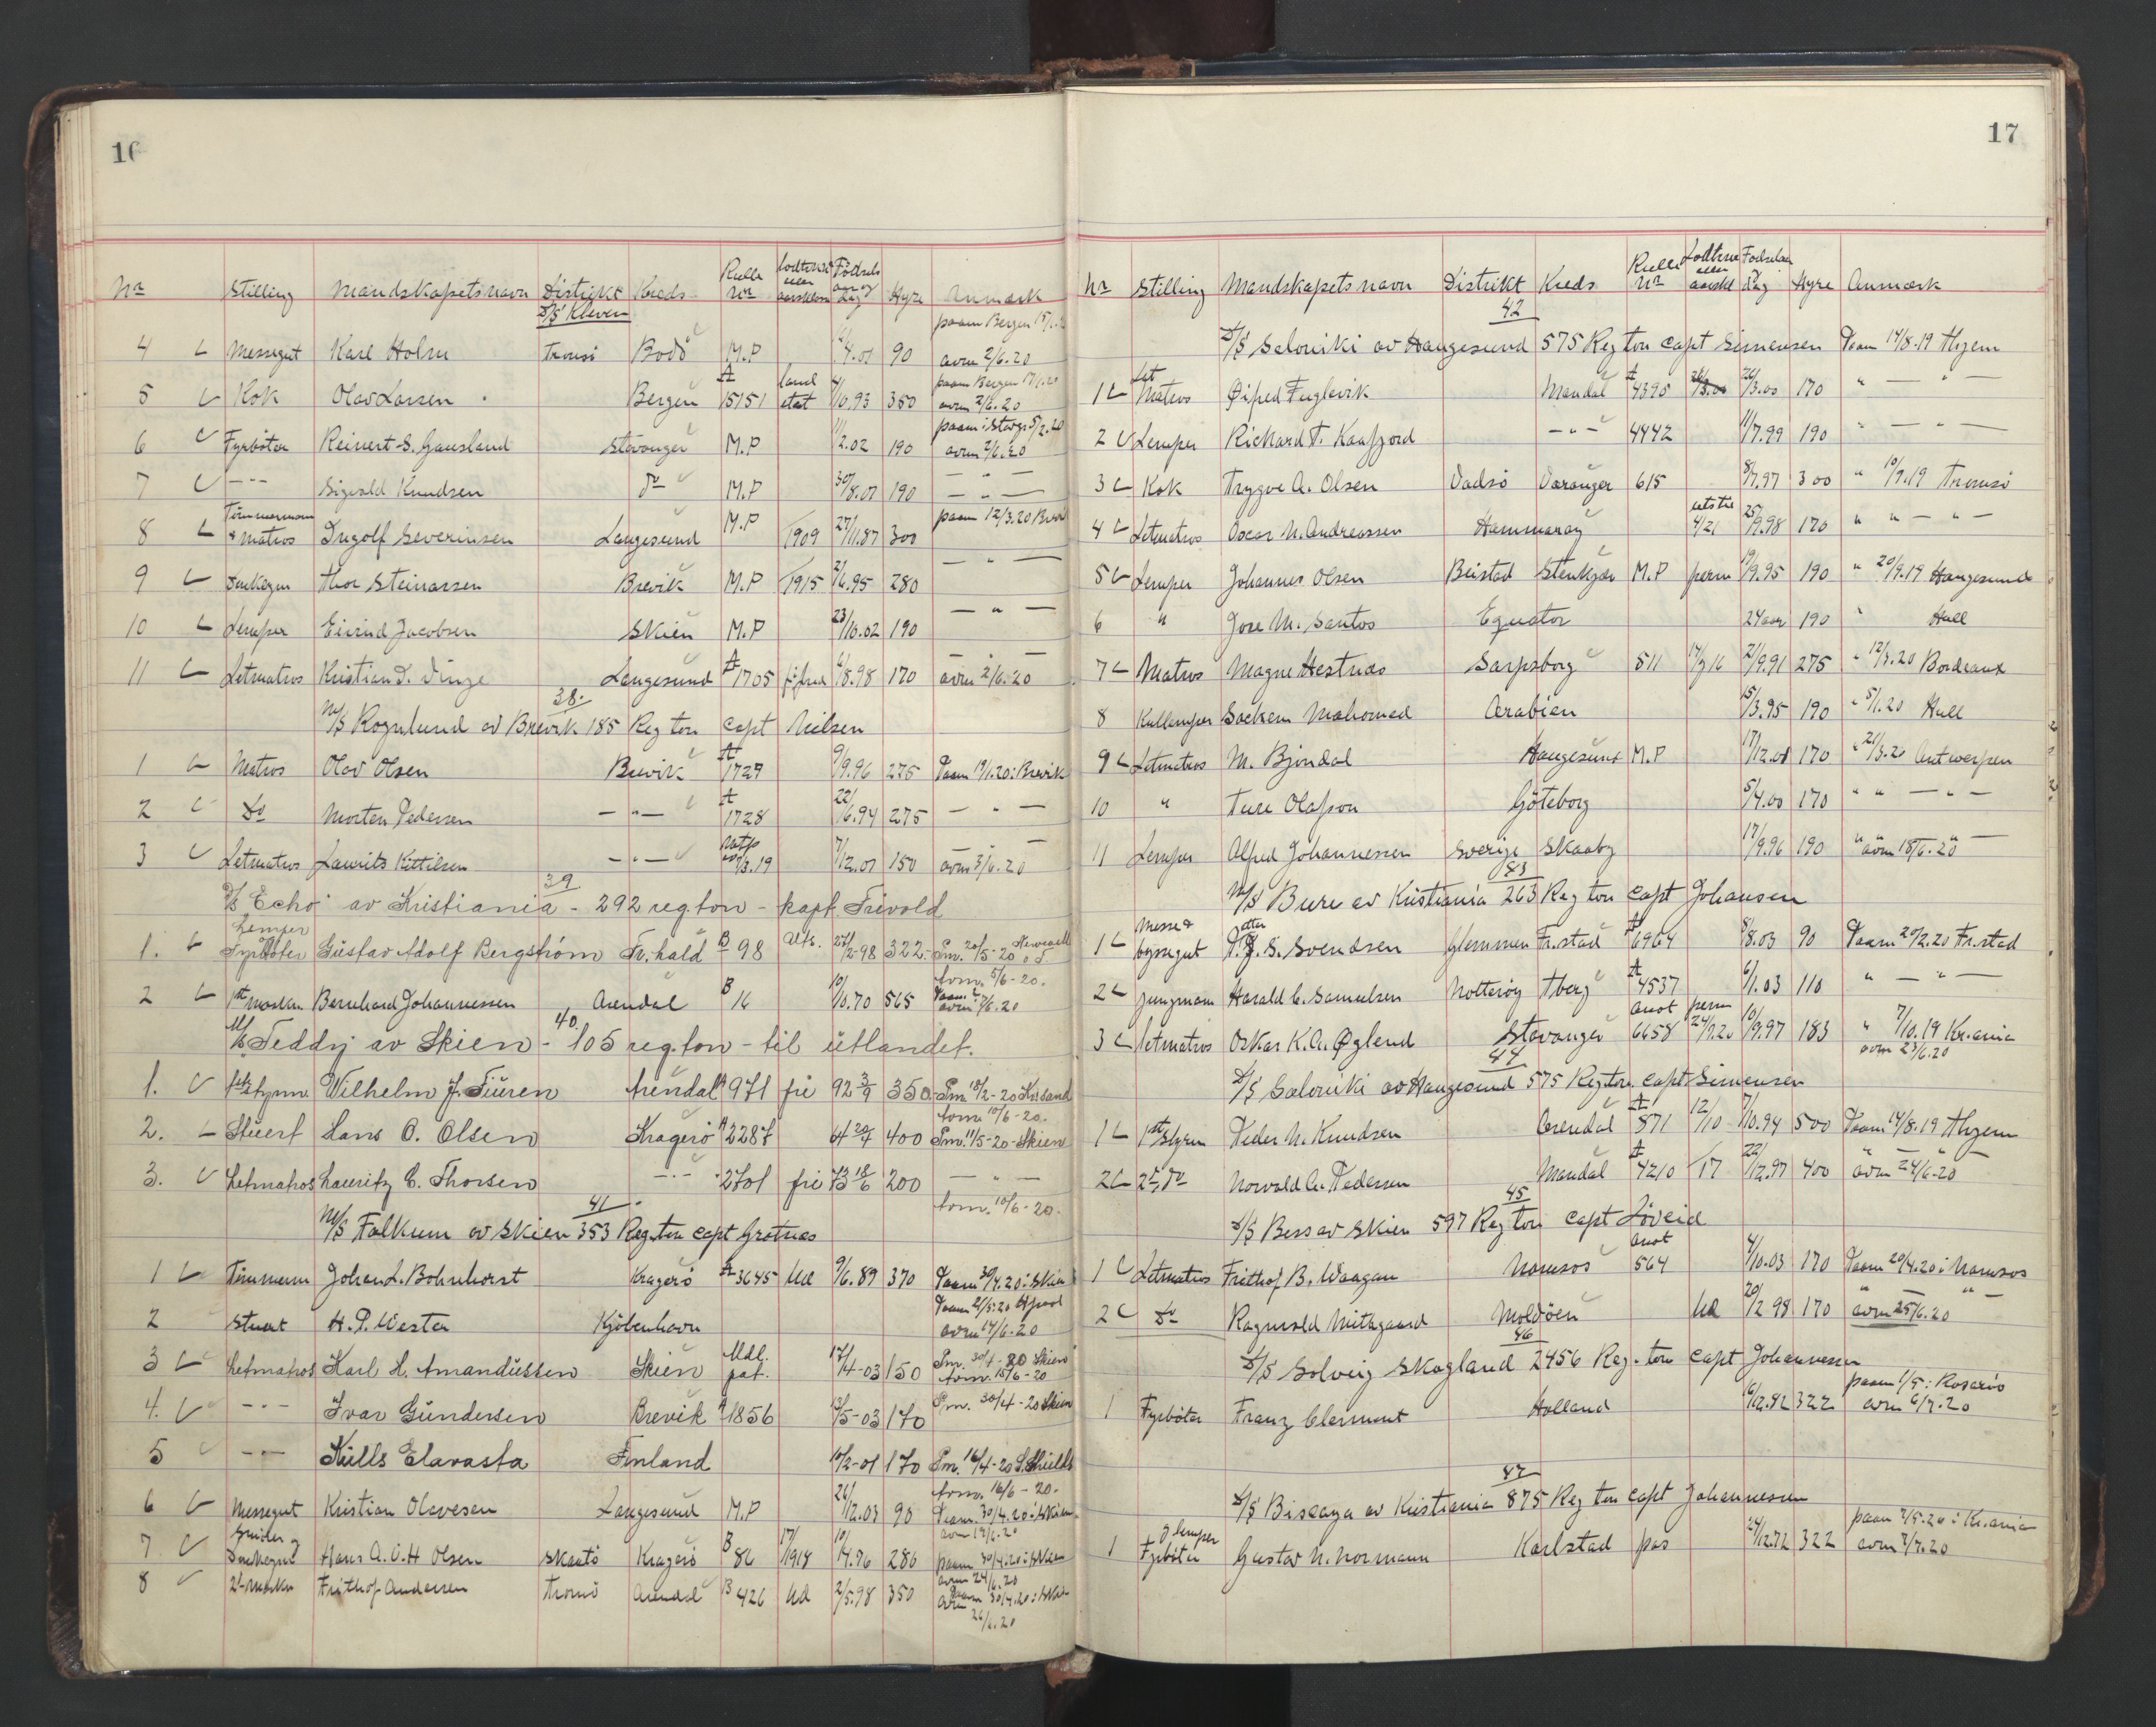 16
Nr Stilling Mandskapets navn Distrikt Kreds Rulle Nr Lodtr.nr eller aarsklasse Födsels aar og dag Hyre Anmærk
S/S Kleven
4 Messegut Karl Holm Tromsö Bodö M.P 4.01 90 paam Bergen avm 2/6.20
5 Kok Olav Larsen Bergen A 15151 land stat 10.93 350 paam Bergen 17/1.20 avm 2/6.20
6 Fyrböter Reinert S. Gausland Stavanger M.P 11/2.02 190 paam i Stavgr. 5/2.20 avm 2/6.20
7 — " — Sigvald Knudsen do M.P 30/8.01 190 — " —
8 Tömmermann & Matros Ingolf Severinsen Langesund M.P 1909 27/11.87 300 paam 12/3.20 Brevik
9 Donkeym Thor Steinarsen Brevik M.P 1915 2/6.95 280 — " —
10 Lemper Eivind Jacobsen Skien M.P 23/10.02 190 — " —
11 Letmatros Kristian D. Vinje Langesund A 1705 8.98 170 avm 2/6.20
38.
M/S Rognlund av Brevik 185 Reg ton Capt Nielsen
1 Matros Olav Olsen Brevik A 1729 9/9.96 275 Paam 19/1.20 i Brevik
2 Do Morten Pedersen — " — A 1728 22/6.94 275 — " —
3 Letmatros Laurits Kittilsen — " — 3.19 7/12.01 150 avm 3/6.20
39
Echo av Kristiania - 292 reg.ton - kapt. Trivold
1. Lemper Fyrböter Gustav Adolf Bergström Fr.hald B 98 Utk. 27/2-98 322.- Pm. 20/5-20 Newcastle avm. 5/6-20.
2 1st Maskn. Bernhard Johannessen Arendal B 16 10/10.70 565 Paam avm 7/6.20
40.
M/S Teddy av Skien - 105 reg.ton - til utlandet.
1. 1ste styrm. Wilhelm J. Tüeren Arendal A 971 fri 92 3/9 350.- Pm. 18/2-20 Krsand avm. 10/6-20.
2. Stuert Hans O. Olsen Kragerö A 2287 400 Pm. 11/5-20 Skien
3. Letmatros Lauritz C. Thorsen — " — 2701 fri 73 18/6 200 — " — avm. 10/6-20.
41
M/S Falkum av Skien 353 Reg.ton Capt Grotnæs
1 Tömmerm Johan L. Bohnhorst Kragerö A 3645 Ud 9/6.89 370 Paam 30/4.20 i Skien
2 Stuert H.P. Wester Kjöbenhavn Paam 21/5.20 avm 14/6.20
3 Letmatros Karl H. Amandussen Skien Udl. pat. 17/4-03 150 Pm. 30/4-20 Skien avm. 15/6-20
4. — " — Ivar Gundersen Brevik A 1856 13/5-03 170 Pm. 30/4-20 Skien
5 — " — Külls Elavasta Finland 10/2-01 170 Pm. 16/4-20 S. Shields avm. 16/6-20.
6 Messegut Kristian Olavesen Langesund M.P 26/12.03 90 Paam 30/4.20 i Skien avm 19/6.20
7 Smider og Donkeym Hans A.O.H Olsen Skaatö Kragerö B 86 17/1918 10/4.76 286 paam 30/4.20 i Skien avm 24/6.20
8 2. Maskn Frithof Andersen Tromö Arendal B 426 Ud 2/5.98 350 paam 30/4.20 i Skien avm 26/6.20
17
Nr Stilling Mandskapets navn Distrikt Kreds Rulle Nr Lodtrnr eller aarskl Födselsaar Dag Hyre Anmærk
42
S/S Saloniki av Haugesund 575 Reg ton Capt Simensen Paam 14/8.19 Thjem
1 Let Matros Öifred Fuglevik Mandal A 4395 26/3.00 26/3.00 170 " — " —
2 Lemper Rickard T. Kaafjord — " — 4442 11/7.99 190 " — " —
3 Kok Trygve A. Olsen Vadsö Varanger 615 8/7.97 300 " 10/9.19 Tromsö
4 Letmatros Oscar N. Andreassen Hammaröy utstr 4/21 25/9.98 170 " " — " —
5 Lemper Johannes Olsen Beistad Stenkjær M.P perm 19/9.95 190 " 20/9.19 Haugesund
6 " Jose M. Santos Equator 24 aar 190 " Hull
7 Matros Magne Hestnæs Sarpsborg 511 17/3 16 21/9.91 275 " 12/3.20 Bordeaux
8 Kullemper Sackem Mahomed Arabien 15/3.95 190 " 5/1.20 Hull
9 Letmatros M. Bjöndal Haugesund M.P 17/12.01 170 " 21/3.20 Antwerpen
10 " Ture Olafson Göteborg 5/4.00 170 " " — " —
11 Lemper Alfred Johannessen Sverige Skaaby 17/9.96 190 " avm 18/6.20
43
M/S Bure av Kristiania 263 Reg ton Capt Johansen
1 Messe & byssegut S. Svendsen Glemmen Fr.stad A 6964 8/8.03 90 Paam 20/2.20 Fr.stad
2 Jungmann Harald C. Samuelsen Notteröy Tberg A 4537 6/1.03 110 " — " —
3 Letmatros Oskar K.A. Øglend Stavanger anot 6658 perm 24/7.20 10/9.97 183 " 7/10.19 Kr.ania avm 23/6.20
44
S/S Saloniki av Haugesund 575 Reg ton. Capt Simensen
1 1st Styrm Peder N. Knudsen Arendal A 871 12/10 7/10.94 500 Paam 14/8.19 Thjem
2 2. do Norvald A. Pedersen Mandal A 4210 17 22/12.97 400 avm 24/6-20
45
S/S Bess av Skien 597 Reg ton Capt Löveid
1 Letmatros Frithof B. Waagan Namsos anot 564 4/10.03 170 Paam 20/4.20 i Namsos
2 Do Ragnvald Mittgaard Moldöen Ud 20/2 98 170 avm 25/6.20
46
S/S Solveig Skogland 2456 Reg. ton Capt Johannessen
1 Fyrböter Franz Clermont Holland 6/12.82 322 paam 1/5 i Rosario avm 6/7.20
47
S/S Biscaya av Kristiania 875 Reg ton Capt Johannessen
1 Fyrböter og lemper Gustav N. Normann Karlstad pas 24/12.72 322 paam 7/5.20 i Kr.ania avm 7/7.20